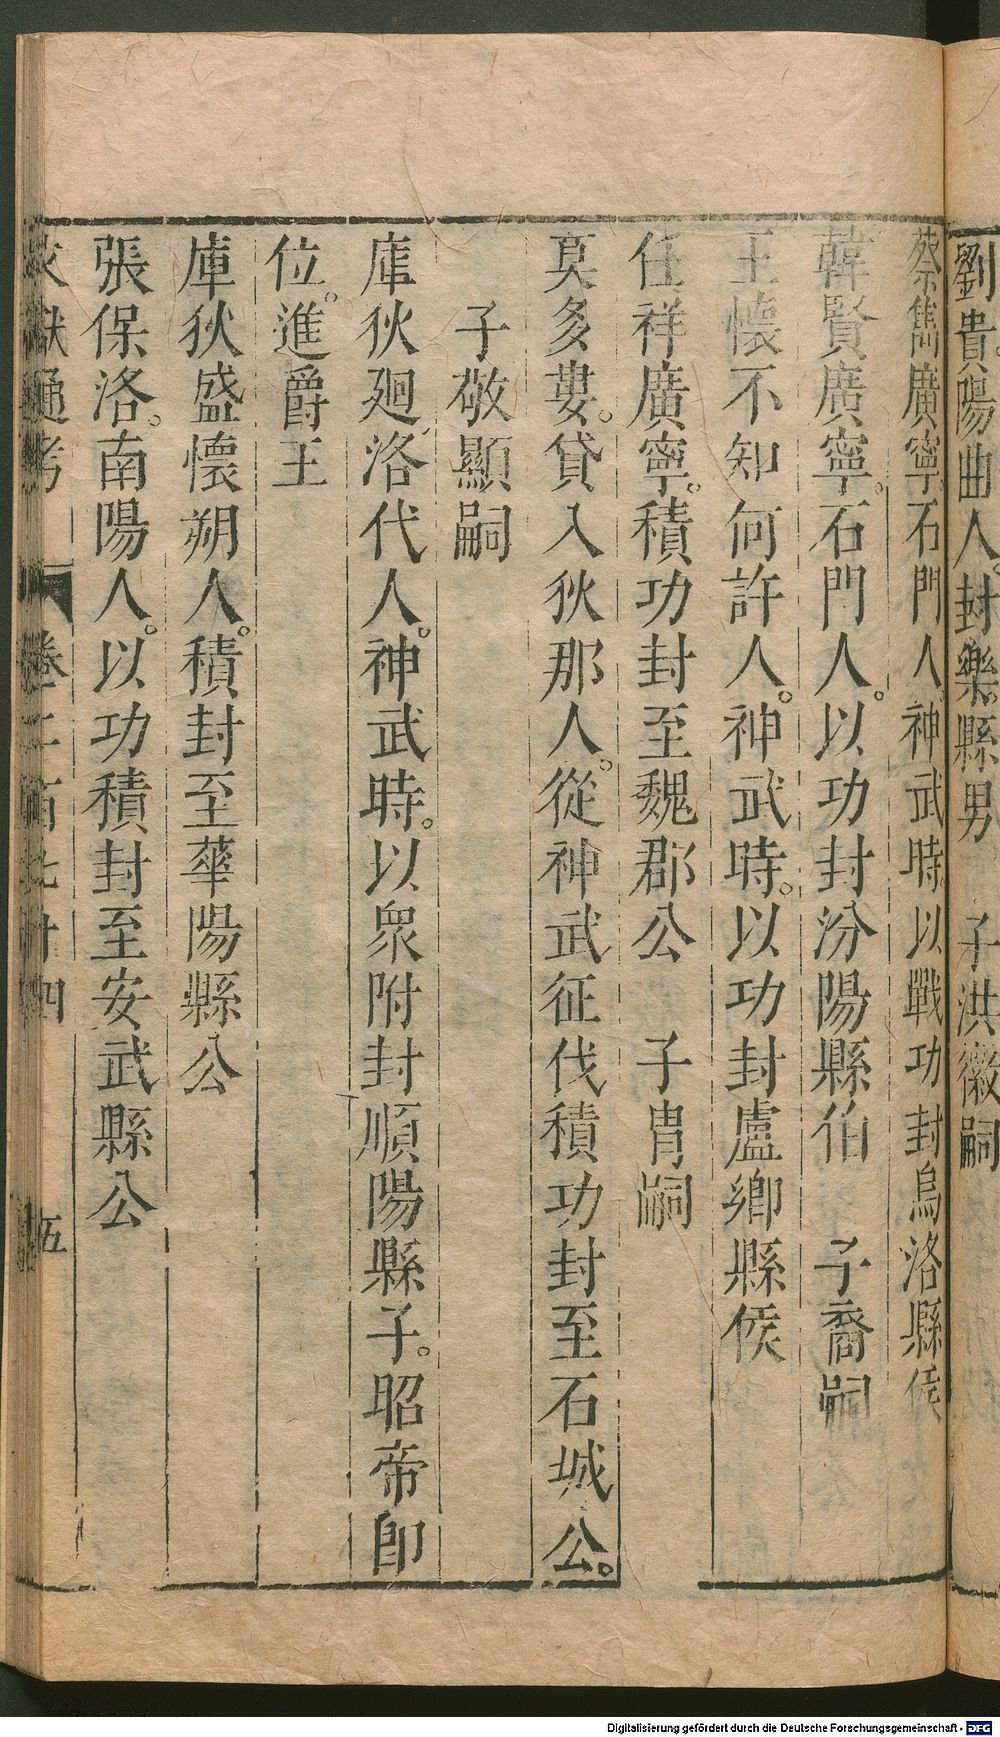 劉貴陽曲人。封樂縣男　子洪徽嗣
蔡雋廣寧石門人神武時以戰功封烏洛縣侯
韓賢廣寧。石門人。以功封汾陽縣伯　子裔嗣
王懷不知何許人。神武時。以功封盧鄉縣侯
任祥廣寧。積功封至魏郡公　子胄嗣
莫多婁。貸入狄那人。從神武征伐積功封至石城公。
子敬顯嗣
庫狄廻洛代人。神武時。以眾附封順陽縣子。昭帝卽
位。進爵王
庫狄盛懷朔人。積封至華陽縣公
張保洛。南陽人。以功積封至安武縣公
文獻通考　卷二百七十四　五
Digitalisierung gefördert durch die Deutsche Forschungsgemeinschaft - DFG